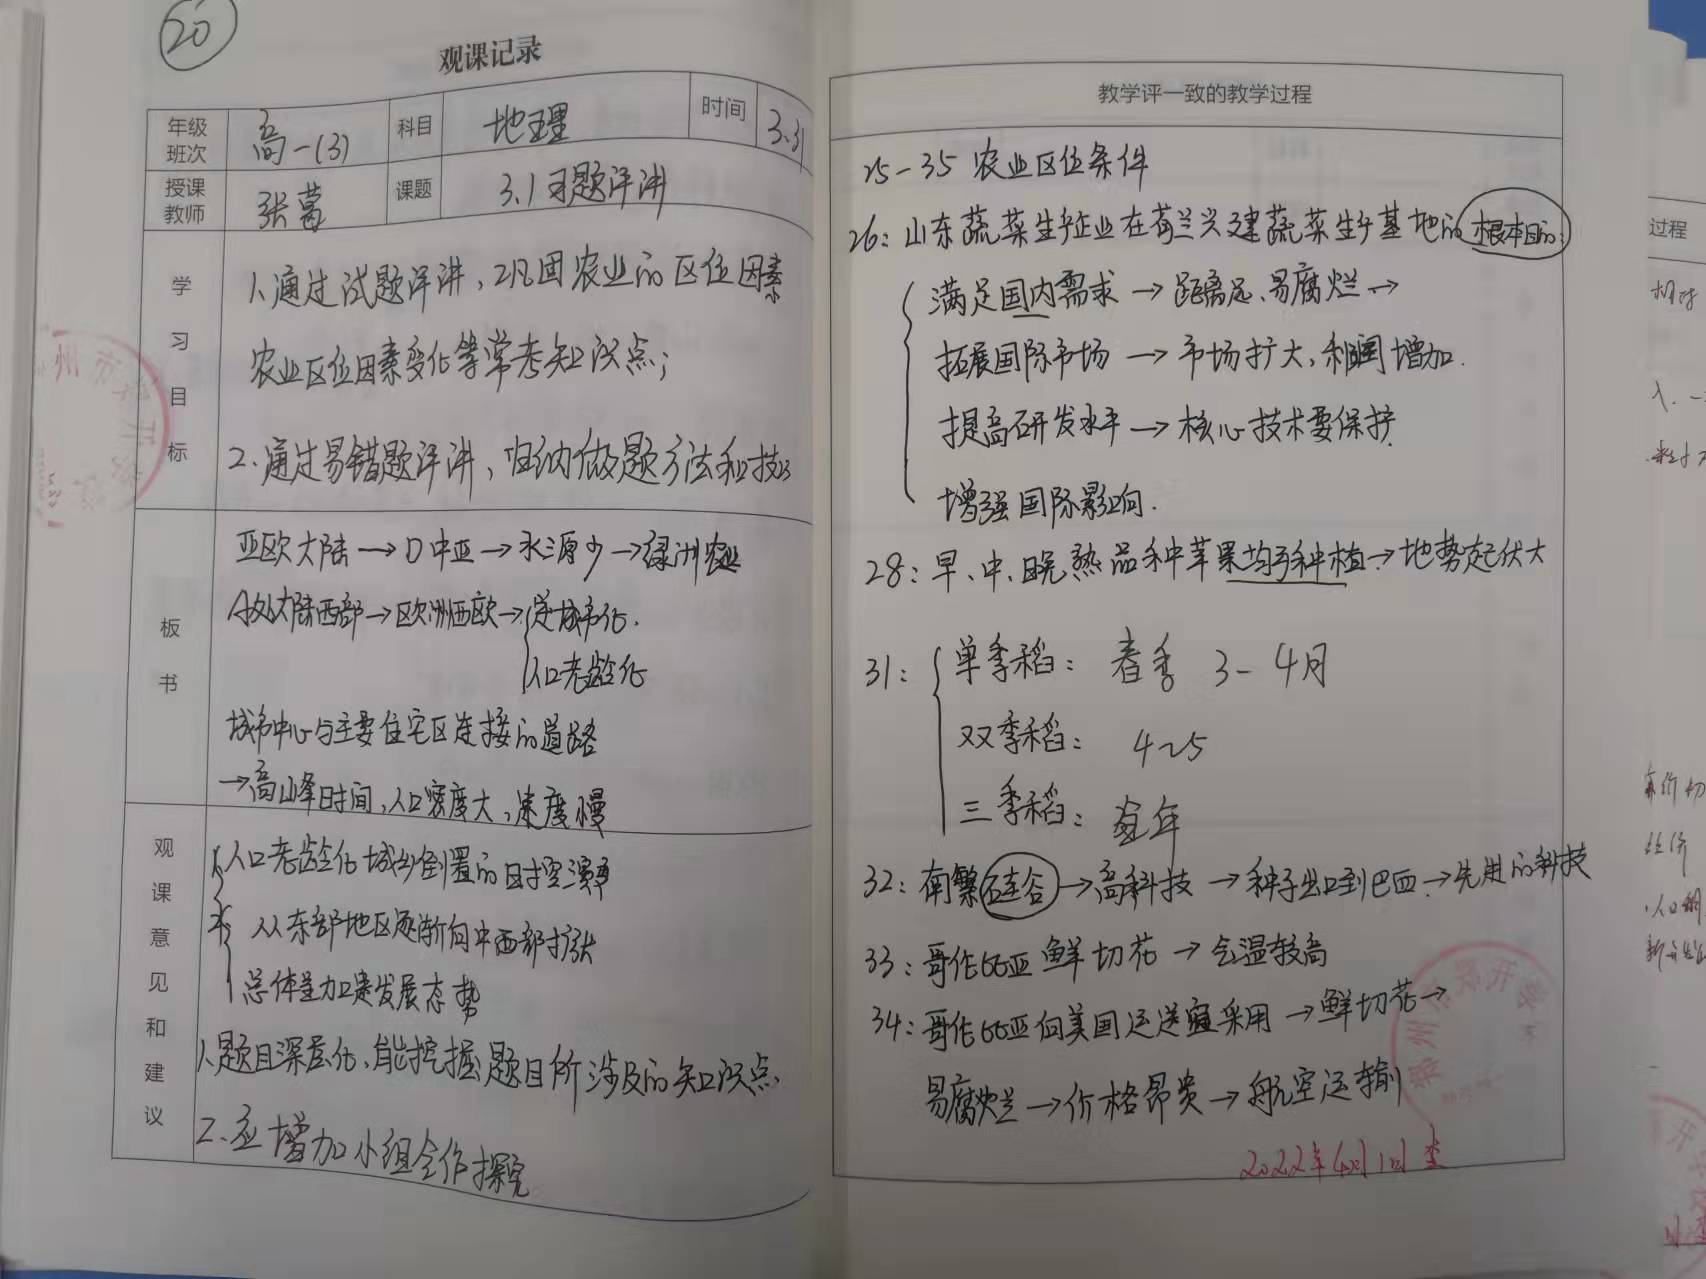 20
观课记录
年级班次 高一(3) 科目 地理 时间 3.31
授课教师 张葛 课题 3.1习题评讲
学习目标
1.通过试题评讲,巩固农业的区位因素
农业区位因素变化等常考知识点;
2.通过易错题评讲,归纳做题方法和技巧
板书
亚欧大陆→中亚→水源少→绿洲农业
大陆西部→欧洲西欧→逆城市化.
人口老龄化
城市中心与主要住宅区连接的道路
→高峰时间,人口密度大,速度慢
观课意见和建议
人口老龄化城乡倒置的时空演变
从东部地区逐渐向中西部扩张
总体呈加速发展态势
1.题目深层化,能挖掘题目所涉及的知识点.
2.应增加小组合作探究
教学评一致的教学过程
25-35 农业区位条件
26:山东蔬菜生产企业在荷兰兴建蔬菜生产基地的根本目的:
满足国内需求→距离远、易腐烂→
拓展国际市场→市场扩大,利润增加.
提高研发水平→核心技术要保护
增强国际影响.
28:早、中、晚熟品种苹果均可种植→地势起伏大
31: 单季稻: 春季 3-4月
双季稻: 4~5
三季稻: 全年
32:南繁硅谷→高科技→种子出口到巴西→先进的科技
33:哥伦比亚鲜切花→气温较高
34:哥伦比亚向美国运送采用→鲜切花→
易腐烂→价格昂贵→航空运输
2022年4月1日 查
过程